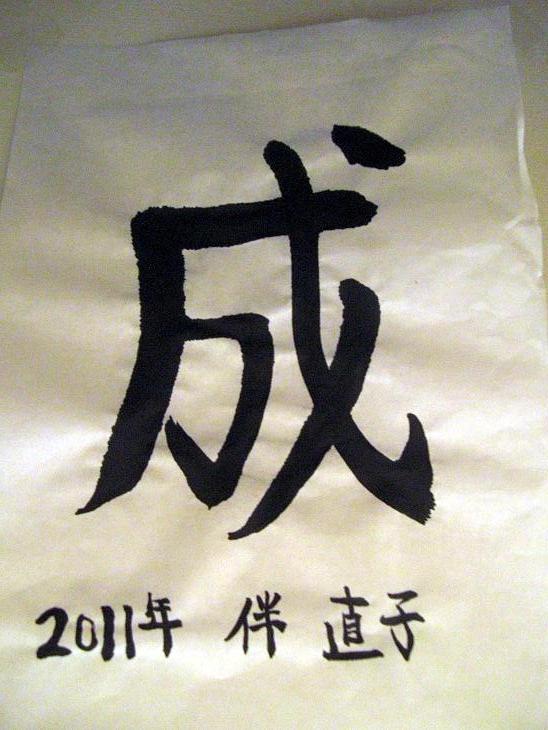 成
2011年 伴 直子